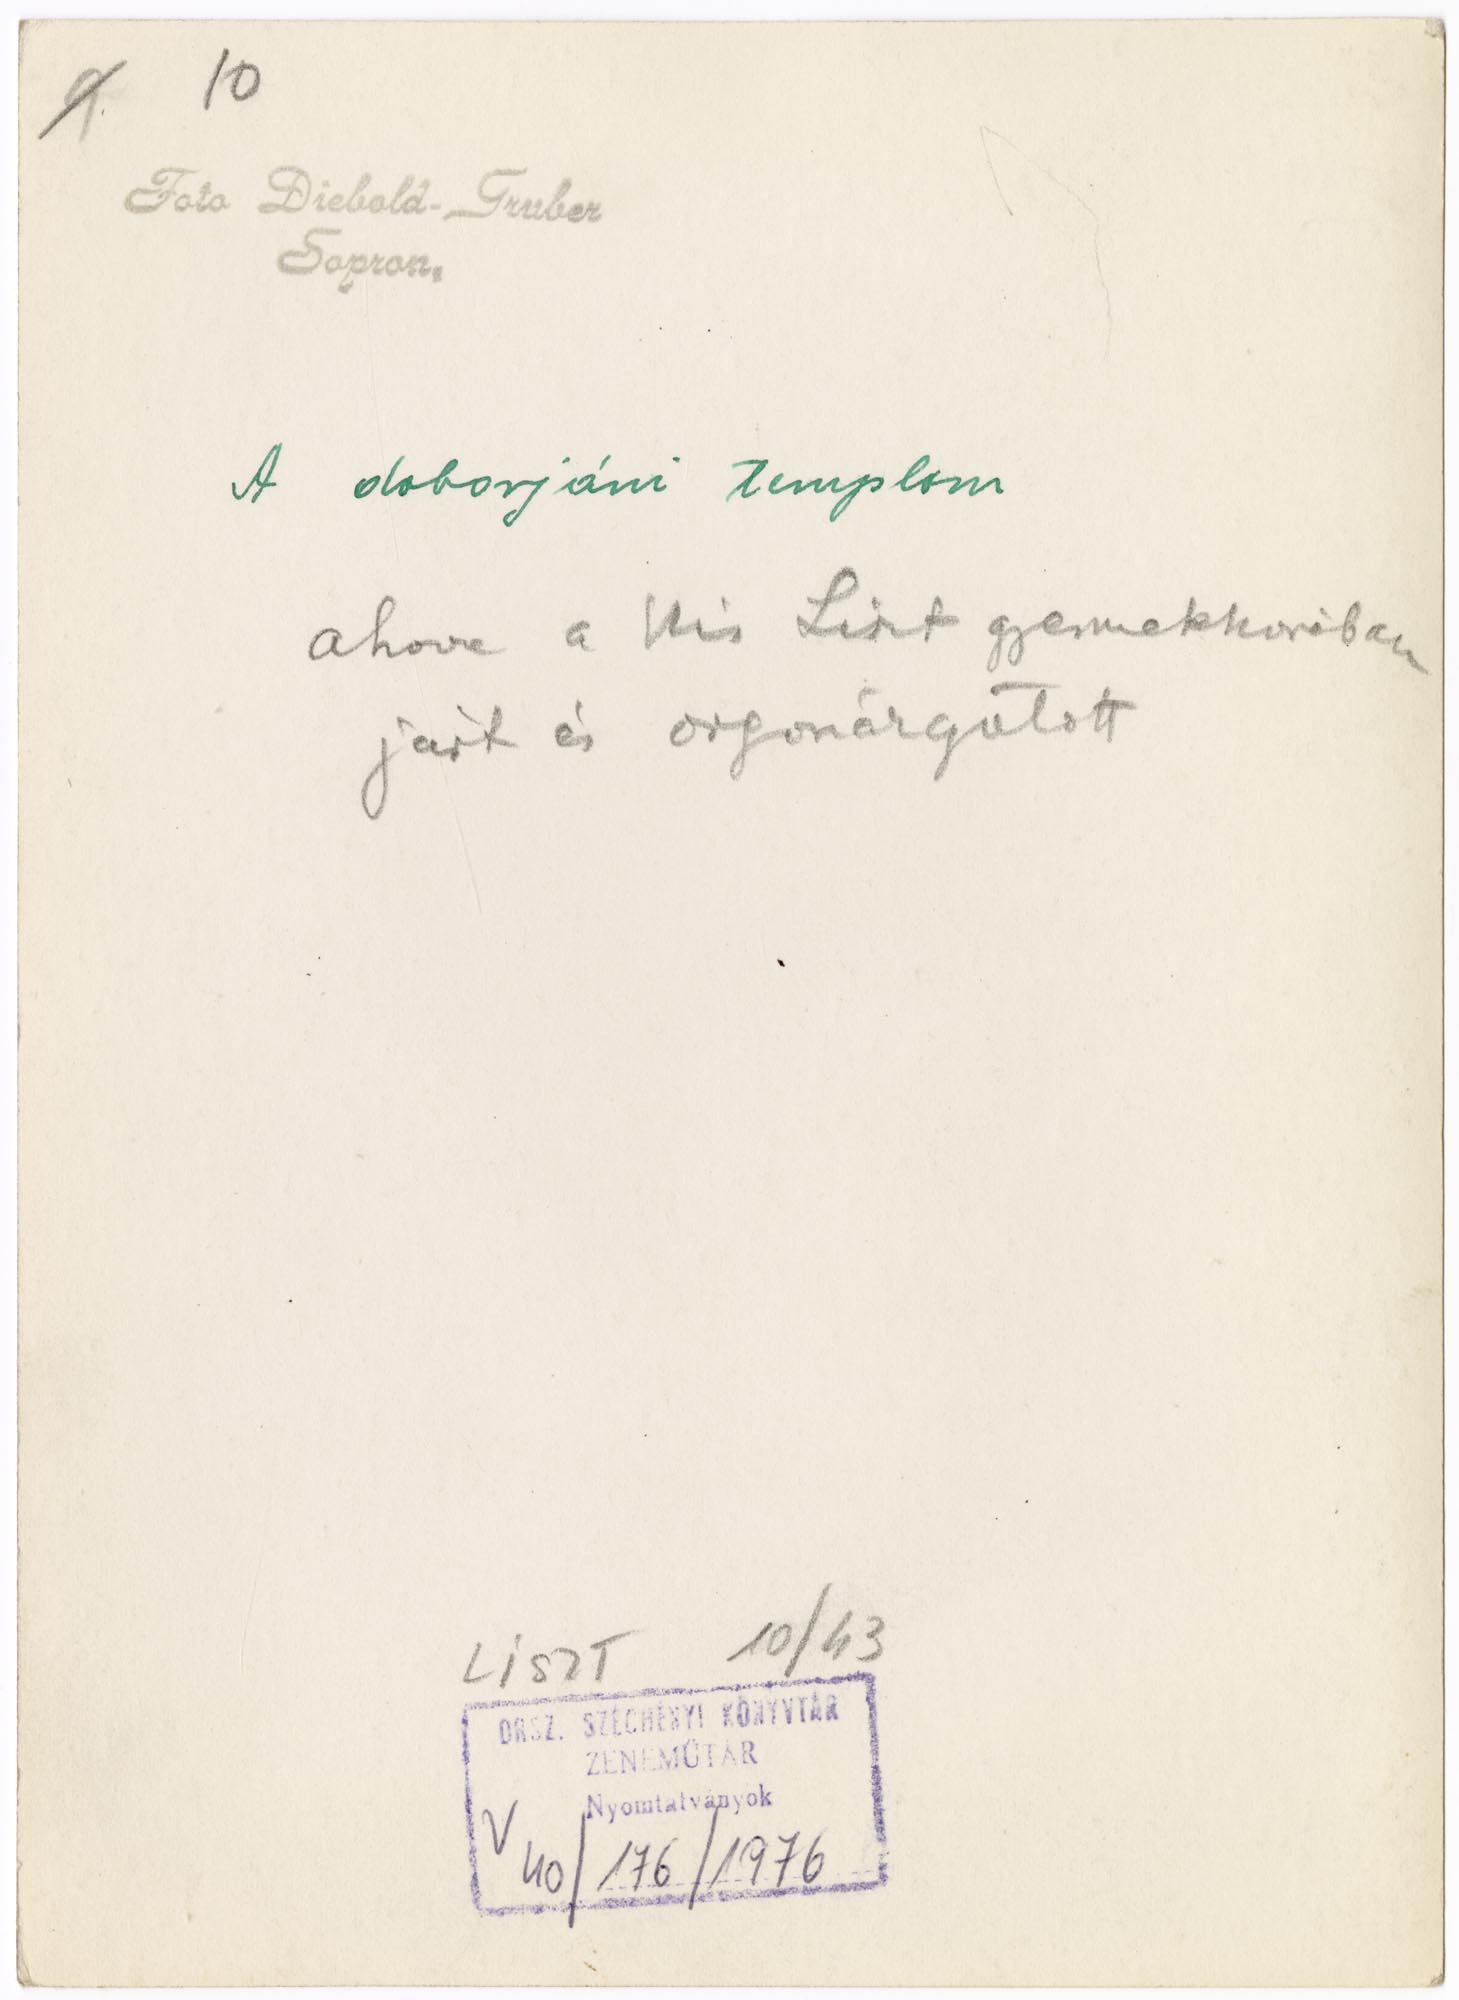 9. 10
Foto Diebold-Gruber
Sopron.
A doborjáni templom
ahova a kis Liszt gyermekkorában
járt és orgonázgatott
LISZT 10/43
ORSZ. SZÉCHÉNYI KÖNYVTÁR
ZENEMŰTÁR
Nyomtatványok
V 40/176/1976